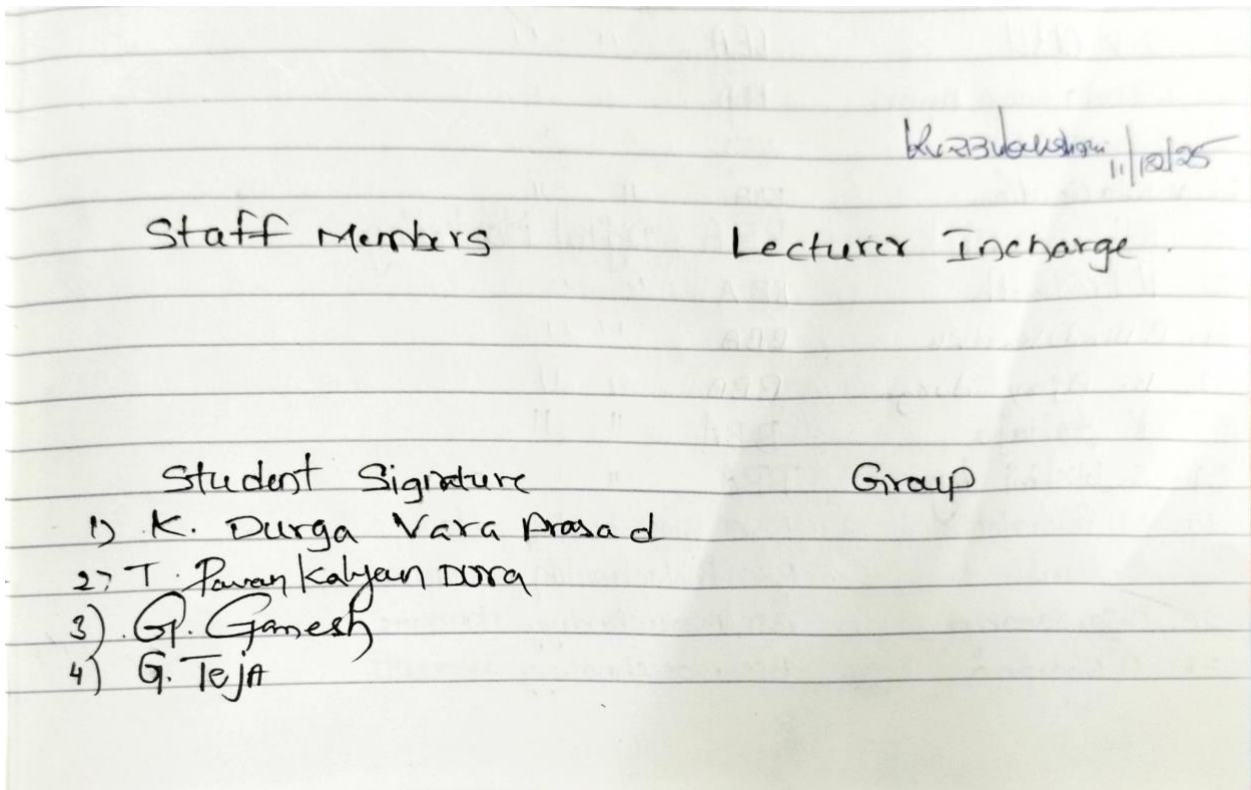 11/12/25
Staff Members Lecturer Incharge.
Student Signature Group
1) K. Durga Vara Prasad
2) T. Pavan Kalyan Dora
3). G. Ganesh
4) G. TejA